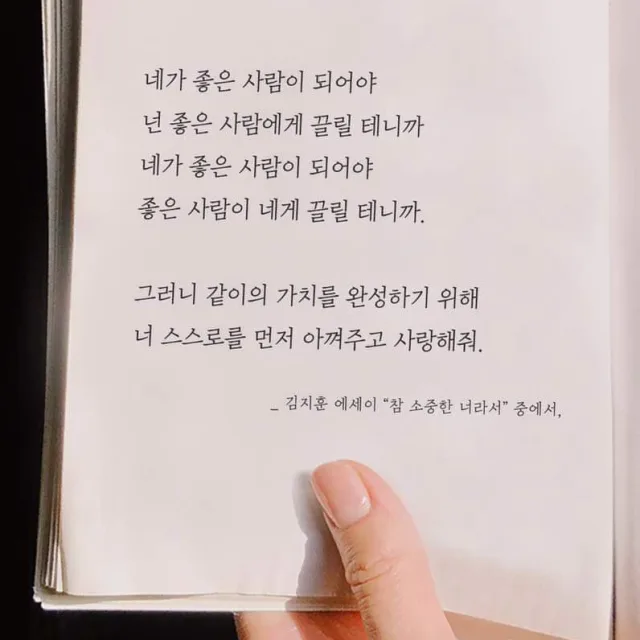 네가 좋은 사람이 되어야
넌 좋은 사람에게 끌릴 테니까
네가 좋은 사람이 되어야
좋은 사람이 네게 끌릴 테니까.
그러니 같이의 가치를 완성하기 위해
너 스스로를 먼저 아껴주고 사랑해줘.
_ 김지훈 에세이 “참 소중한 너라서” 중에서,